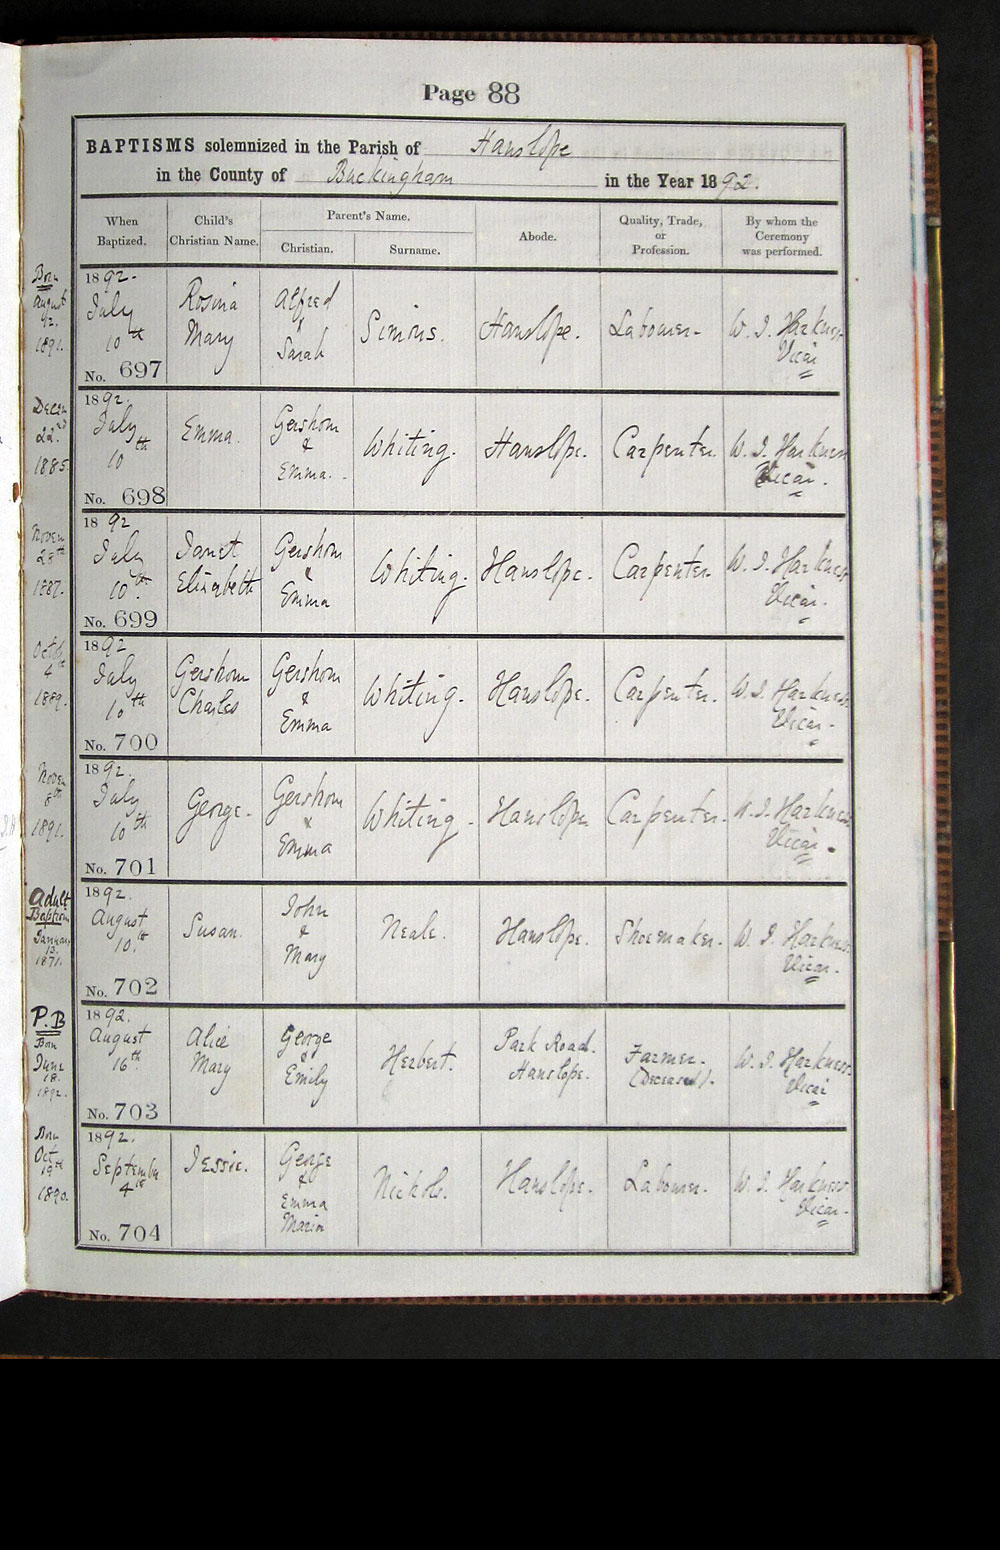 Page 88
BAPTISMS solemnized in the Parish of Hanslope
in the County of Buckingham in the Year 1892.
When Baptized.
Child's Christian Name.
Parent's Name.
Christian.
Surname.
Abode.
Quality, Trade, or Profession.
By whom the Ceremony was performed.
Born
August
1891.
1892.
July
10th
No. 697
Rosina
Mary
Alfred
&
Sarah
Simons.
Hanslope.
Labourer.
W. J. Harkness
Vicar
Decem
22nd
1885.
1892.
July
10th
No. 698
Emma.
Gershom
&
Emma.
Whiting.
Hanslope.
Carpenter.
W. J. Harkness
Vicar.
Novem
28th
1887.
1892
July
10th.
No. 699
Janet
Elizabeth
Gershom
&
Emma
Whiting.
Hanslope.
Carpenter.
W. J. Harkness
Vicar.
Octob
4th
1889.
1892
July
10th
No. 700
Gershom
Charles
Gershom
&
Emma
Whiting.
Hanslope.
Carpenter.
W. J. Harkness
Vicar.
Novem
8th
1891.
1892.
July
10th
No. 701
George.
Gershom
&
Emma
Whiting.
Hanslope
Carpenter.
W. J. Harkness
Vicar.
Adult
Baptism
January
13.
1871.
1892.
August
10th
No. 702
Susan.
John
&
Mary
Neale.
Hanslope.
Shoemaker.
W. J. Harkness.
Vicar.
P.B
Born
June
18.
1892.
1892.
August
16th
No. 703
Alice
Mary
George
&
Emily
Herbert.
Park Road.
Hanslope.
Farmer.
(Deceased).
W. J. Harkness.
Vicar
Born
Oct
19th
1890.
1892.
September
4th
No. 704
Jessie.
George
&
Emma
Maria
Nichols.
Hanslope.
Labourer.
W. J. Harkness
Vicar.